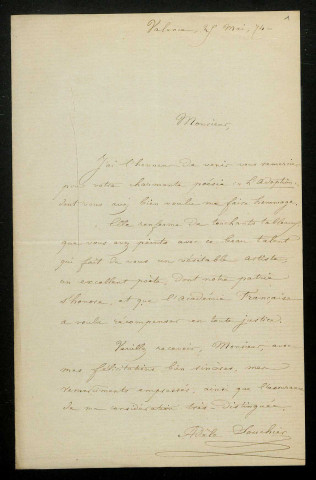 Valence, 25 Mai, 74 -
Monsieur,
J'ai l'honneur de venir vous remercier
pour votre charmante poésie : l'Adoption,
dont vous avez bien voulu me faire hommage.
Elle renferme de touchants tableaux
que vous avez peints avec ce beau talent
qui fait de vous un véritable artiste,
un excellent poète, dont notre patrie
s'honore, et que l'Académie Française
a voulu récompenser en toute justice.
Veuillez recevoir, Monsieur, avec
mes félicitations bien sincères, mes
remerciements empressés, ainsi que l'assurance
de ma considération très distinguée.
Adèle Souchier